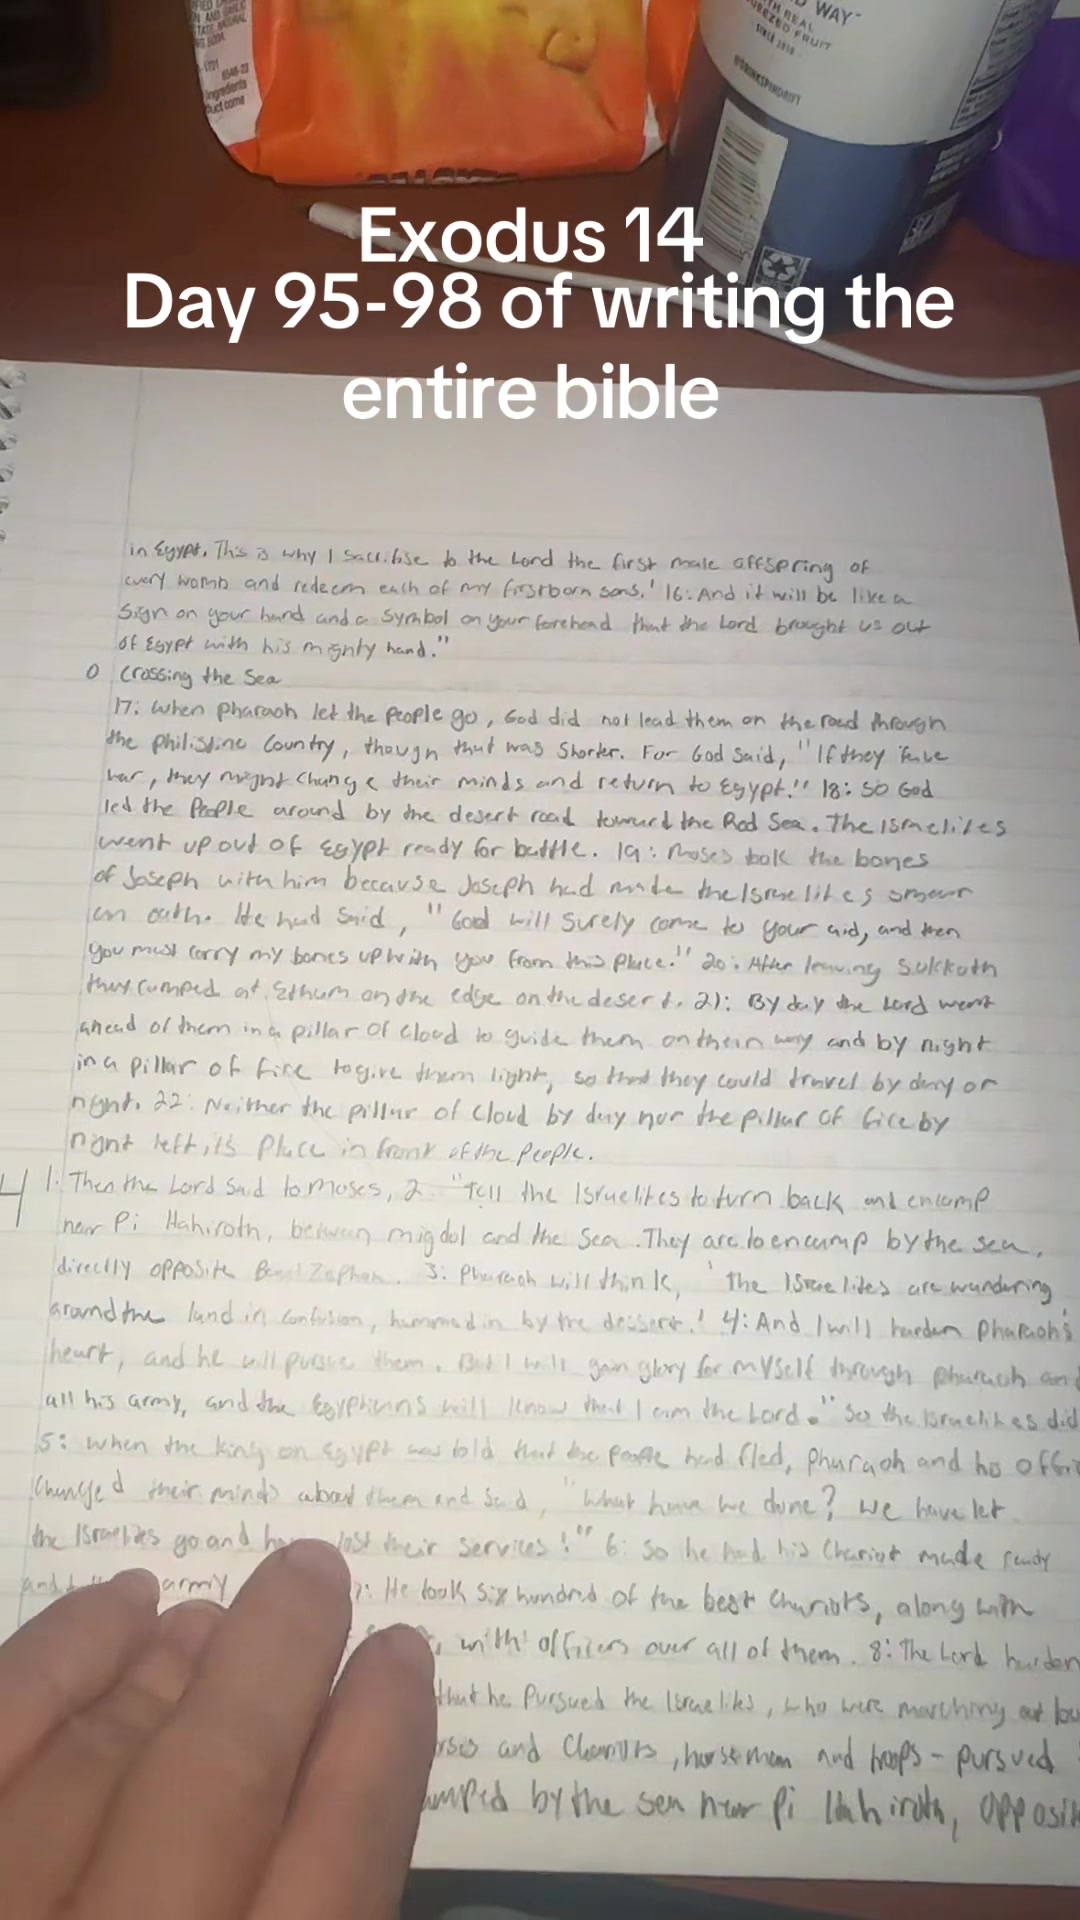 WAY
TH REAL
SQUEEZED FRUIT
SINCE 2010
@DRINKSPINDRIFT
Ingredients
Exodus 14
Day 95-98 of writing the
entire bible
in Egypt. This is why I sacrifise to the Lord the first male offspring of
every womb and redeem each of my firstborn sons.' 16: And it will be like a
sign on your hand and a symbol on your forehead that the Lord brought us out
of Egypt with his mighty hand."
o Crossing the Sea
17: When pharaoh let the people go, God did not lead them on the road through
the philistine Country, though that was shorter. For God said, "If they face
war, they might change their minds and return to Egypt." 18: So God
led the People around by the desert road toward the Red Sea. The Israelites
went up out of Egypt ready for battle. 19: Moses took the bones
of Joseph with him because Joseph had made the Israelites swear
an oath. He had said, "God will surely come to your aid, and then
you must carry my bones up with you from this place." 20: After leaving Sukkoth
they camped at Etham on the edge on the desert. 21: By day the Lord went
ahead of them in a pillar of cloud to guide them on their way and by night
in a pillar of fire to give them light, so that they could travel by day or
night. 22: Neither the pillar of cloud by day nor the pillar of fire by
night left its place in front of the people.
4 1: Then the Lord said to Moses, 2 "Tell the Israelites to turn back and encamp
near Pi Hahiroth, between migdol and the Sea. They are to encamp by the sea,
directly opposite Baal Zephon. 3: Pharaoh will think, 'The Israelites are wandering
around the land in confusion, hemmed in by the dessert.' 4: And I will harden Pharaoh's
heart, and he will pursue them. But I will gain glory for myself through pharaoh and
all his army, and the Egyptians will know that I am the Lord." So the Israelites did
5: When the king on Egypt was told that the people had fled, pharaoh and his offi
changed their minds about them and said, "What have we done? We have let
the Israelites go and have lost their services!" 6: So he had his Chariot made ready
and army 7: He took six hundred of the best Chariots, along with
with officers over all of them. 8: The Lord harden
that he Pursued the Israelites, who were marching out bo
and Chariots, horsemen and troops - pursued
by the sea near Pi Hahiroth, opposit